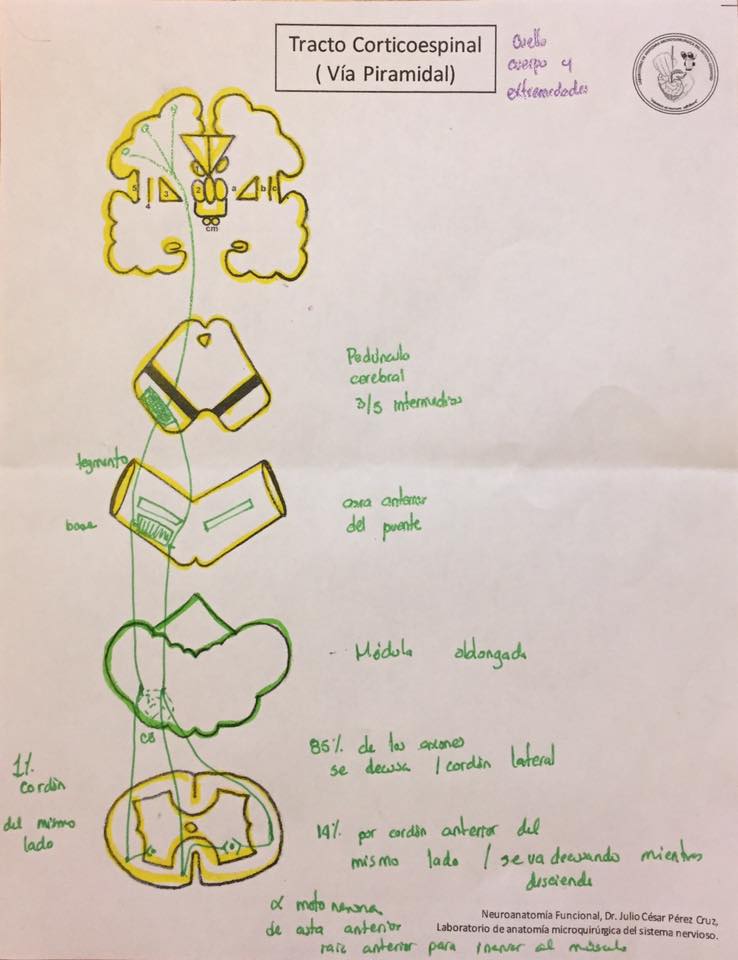 Tracto Corticoespinal
( Vía Piramidal)
Cuello
cuerpo y
extremedades
5
4
3
1
2
a
b
c
cm
Pedúnculo
cerebral
3/5 intermedios
tegmento
base
cara anterior
del puente
- Médula oblongada
CB
85% de los axones
se decusa / cordón lateral
1%
cordón
del mismo
lado
14% por cordón anterior del
mismo lado / se va decusando mientras
desciende
α moto neurona
de asta anterior
raíz anterior para inervar al músculo
Neuroanatomía Funcional, Dr. Julio César Pérez Cruz,
Laboratorio de anatomía microquirúrgica del sistema nervioso.